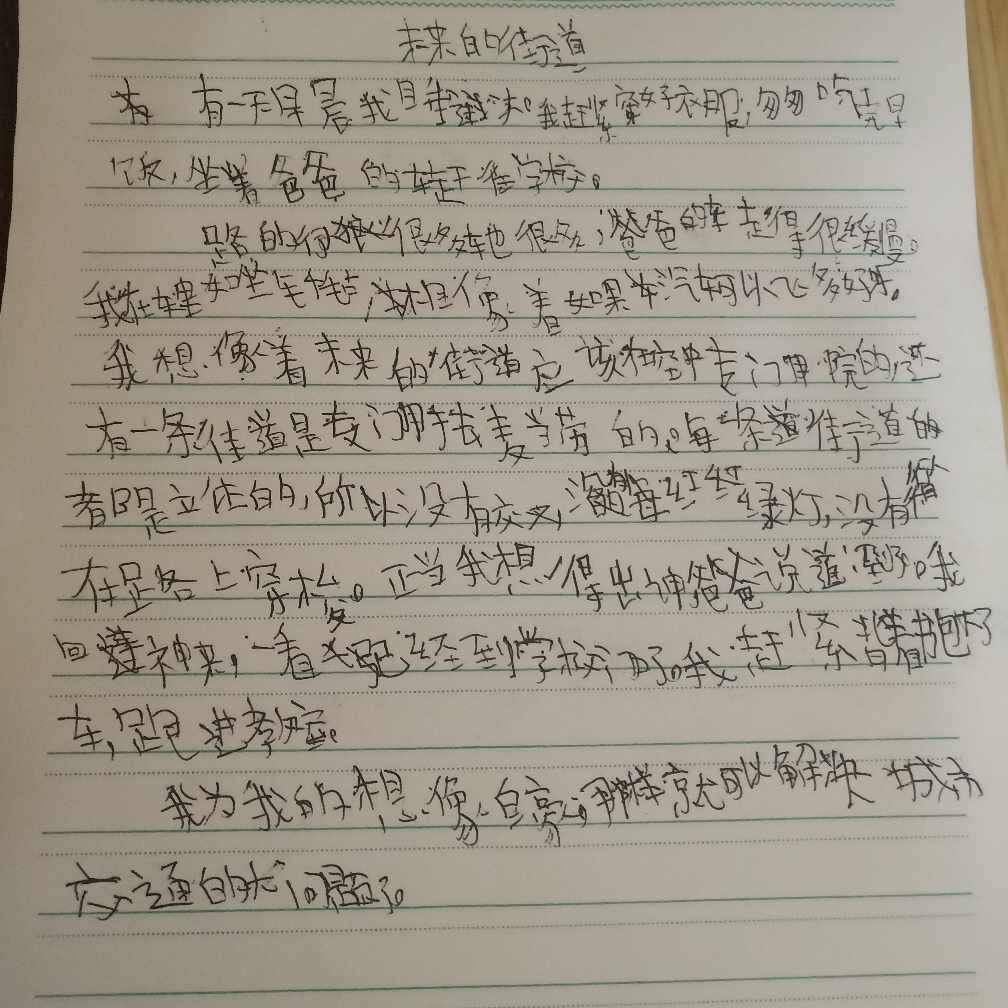 未来的街道
有一天早晨我自我赶紧穿好衣服,匆匆吃完早
饭,坐着爸爸的车赶往学校。
路的行人很多车也很多,爸爸的车走得很缓慢。
我在车里想像着如果汽车可以飞多好呀。
我想像着未来的街道应该在空中专门的,还
有一条街道是专门的。每条街道的
都是立体的,所以没有交叉,没有红绿灯,没有
在路上穿梭。正当我想得出神爸爸说道到了。我
回过神来,一看已经到学校了。我赶紧背着书包下了
车,跑进教室。
我为我的想像自豪,那样就可以解决城市
交通的问题了。